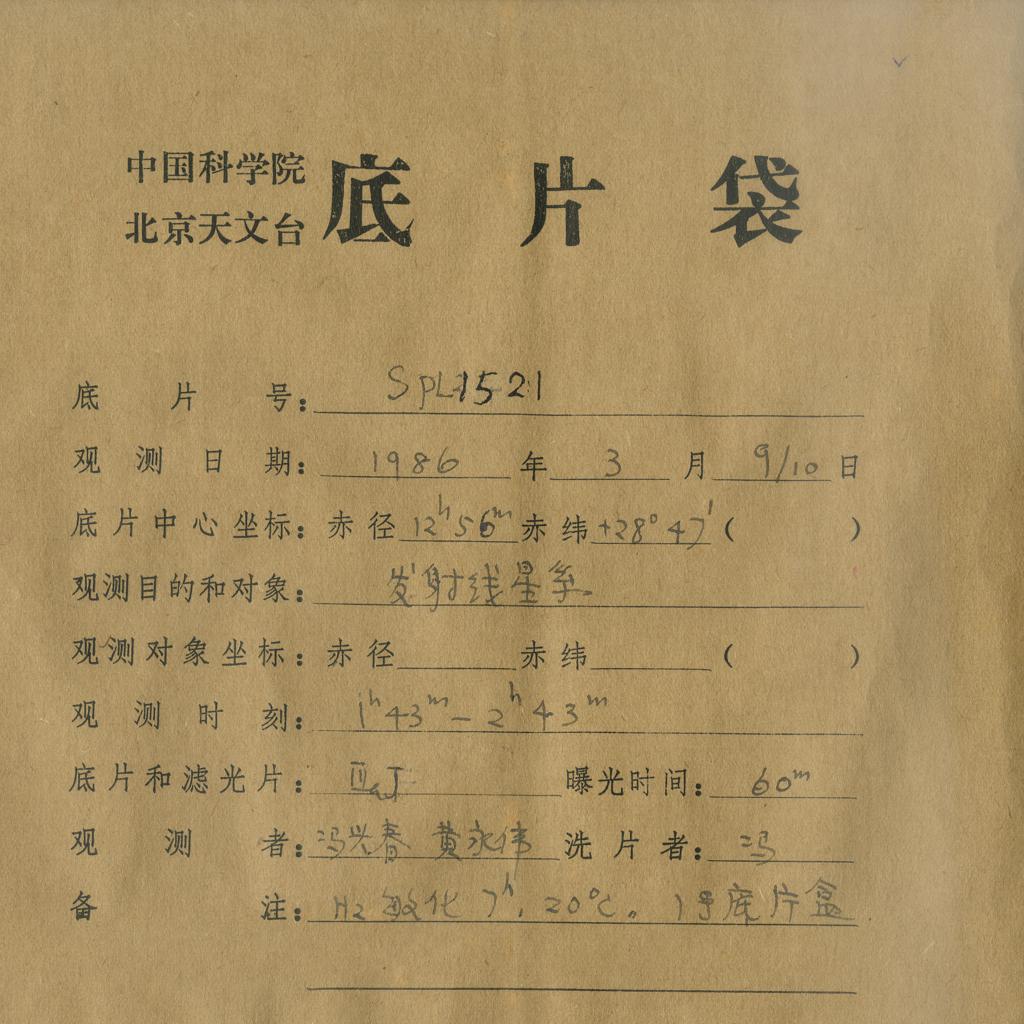 中国科学院
北京天文台 底片袋
底片号： SPL1521
观测日期： 1986 年 3 月 9/10 日
底片中心坐标： 赤径 12h56m 赤纬 +28°47' ( )
观测目的和对象： 发射线星系.
观测对象坐标： 赤径 赤纬 ( )
观测时刻： 1h43m — 2h43m
底片和滤光片： IIIaJ 曝光时间： 60m
观测者： 冯兴春 黄永伟 洗片者： 冯
备注： H2 敏化 7h. 20℃。 1号底片盒